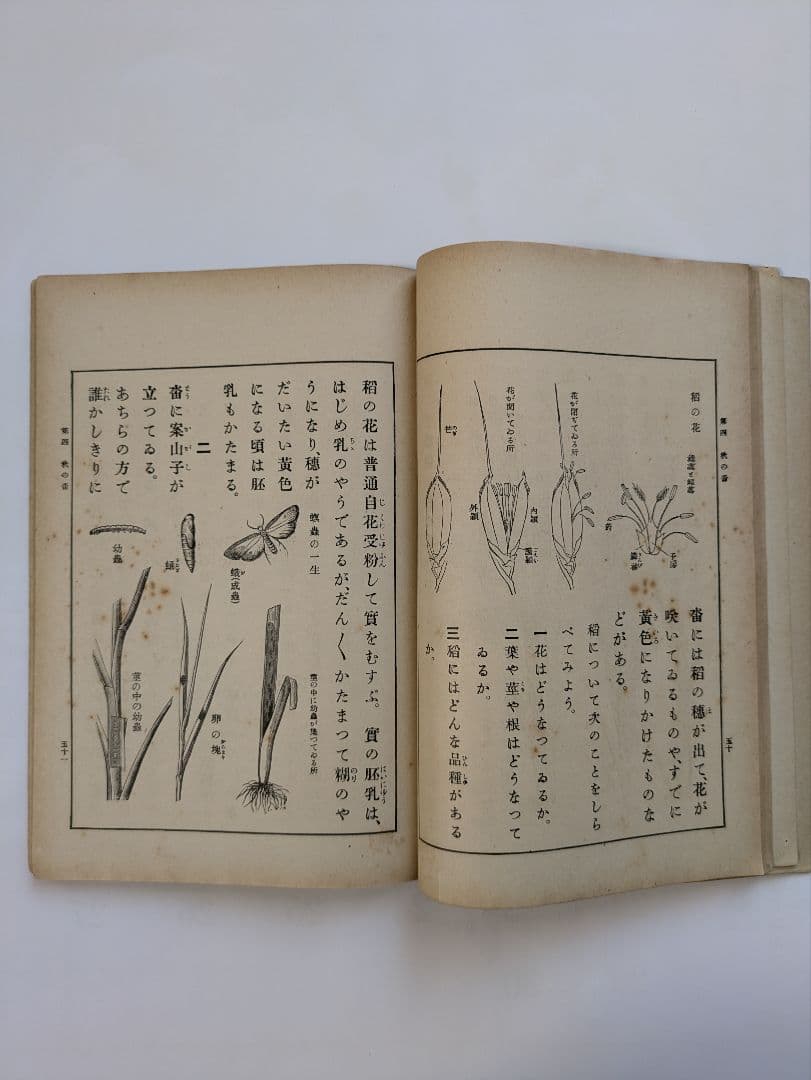 第四 秋の畓
五十
畓には稻の穗が出て、花が
咲いてゐるものや、すでに
黃色になりかけたものな
どがある。
稻について次のことをしら
べてみよう。
一花はどうなつてゐるか。
二葉や莖や根はどうなつて
ゐるか。
三稻にはどんな品種がある
か。
稻の花
雄蕊と雌蕊
葯
子房
花が閉ぢてゐる所
花が開いてゐる所
內穎
外穎
芒
稻の花は普通自花受粉して實をむすぶ。實の胚乳は、
はじめ乳のやうであるが、だん〱かたまつて糊のや
うになり、穗が
だいたい黃色
になる頃は胚
乳もかたまる。
二
畓に案山子が
立つてゐる。
あちらの方で
誰かしきりに
螟蟲の一生
蛾(成蟲)
蛹
幼蟲
莖の中に幼蟲が集つてゐる所
卵の塊
莖の中の幼蟲
第四 秋の畓
五十一